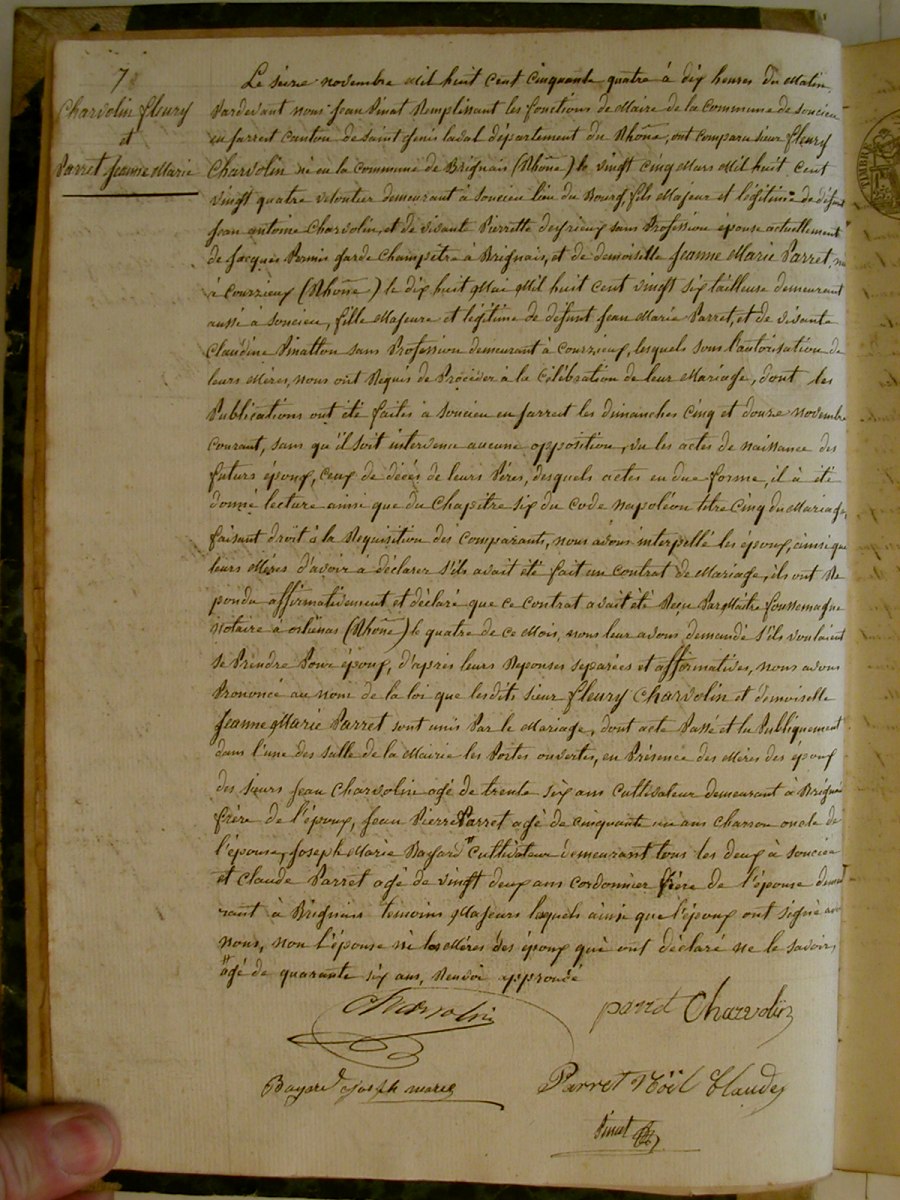 7
Charvolin fleury
et
Parret Jeanne Marie
Le seize novembre Mil huit cent cinquante quatre à dix heures du Matin,
Pardevant nous Jean Pinat Remplissant les fonctions de Maire de la Commune de soucieu
en jarrest canton de saint Genis laval département du Rhône, ont comparu sieur fleury
Charvolin né en la Commune de Brignais (Rhône) le vingt cinq Mars Mil huit cent
vingt quatre veloutier demeurant à soucieu lieu du Bourg, fils Majeur et légitime de défunt
Jean antoine Charvolin, et de vivante Pierrette sans Profession épouse actuellement
de Jacques Permis garde Champêtre à Brignais, et de demoiselle Jeanne Marie Parret, née
à Courzieux (Rhône) le dix huit Mai Mil huit cent vingt six tailleuse demeurant
aussi à soucieu, fille Majeure et légitime de défunt Jean Marie Parret, et de vivante
Claudine Pinatton sans Profession demeurant à Courzieux, lesquels sous l'autorisation de
leurs Mères, nous ont Requis de Procéder à la Célébration de leur Mariage, dont les
Publications ont été faites à soucieu en jarrest les dimanches Cinq et douze novembre
Courant, sans qu'il soit intervenu aucune opposition, vu les actes de naissance des
futurs époux, ceux de décès de leurs Pères, desquels actes en due forme, il à été
donné lecture ainsi que du Chapitre six du Code napoléon titre Cinq du Mariage,
faisant droit à la Requisition des comparants, nous avons interpellé les époux, ainsi que
leurs Mères d'avoir à déclarer s'ils avait été fait un contrat de Mariage, ils ont Re
pondu affirmativement et déclaré que ce contrat avait été Reçu Par Maître foussemagne
notaire à orliénas (Rhône) le quatre de ce Mois, nous leur avons demandé s'ils voulaient
se Prendre Pour époux, d'après leurs Reponses separées et affirmatives, nous avons
Prononcé au nom de la loi que lesdits sieur fleury Charvolin et demoiselle
Jeanne Marie Parret sont unis Par le Mariage, dont acte Passé et lu Publiquement
dans l'une des salle de la Mairie les Portes ouvertes, en Présence des Mères des époux
des sieurs Jean Charvolin agé de trente six ans Cultivateur demeurant à Brignais
frère de l'époux, Jean Pierre Parret agé de cinquante un ans Charron oncle de
l'épouse, Joseph Marie Bayard Cultivateur demeurant tous les deux à soucieu
et Claude Parret agé de vingt deux ans cordonnier frère de l'épouse demeu
rant à Brignais temoins Majeurs lesquels ainsi que l'époux ont signé avec
nous, non l'épouse ni les Mères des époux qui ont déclaré ne le savoir,
agé de quarante six ans, Renvoi approuvé
Charvolin
parret Charvolin
Bayard joseph marie
Parret Noël Claude
Pinat
TIMBRE